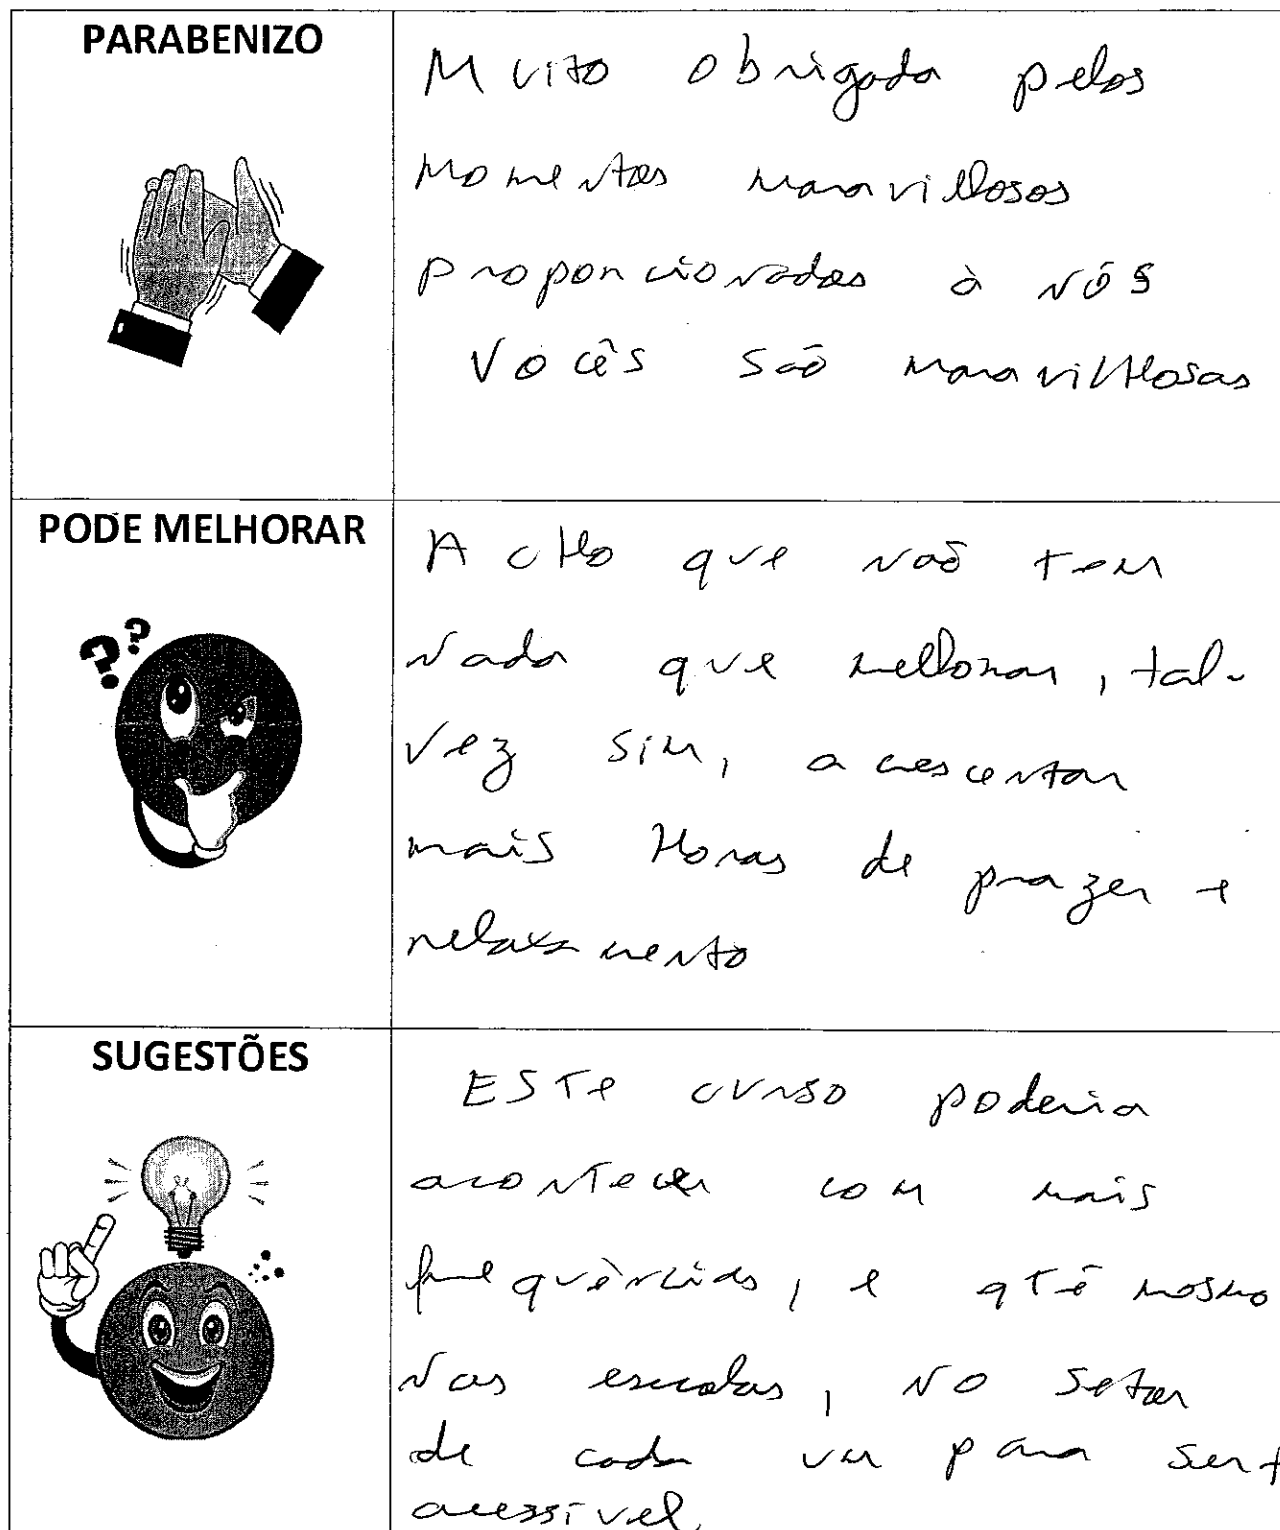 PARABENIZO
Muito obrigada pelos
momentos maravilhosos
proporcionados à nós
Vocês são maravilhosas
PODE MELHORAR
Acho que não tem
nada que melhorar, tal-
vez sim, acrescentar
mais Horas de prazer e
relaxamento
SUGESTÕES
ESTe curso poderia
acontecer com mais
frequência, e até mesmo
nas escolas, no setor
de cada um para ser
acessível